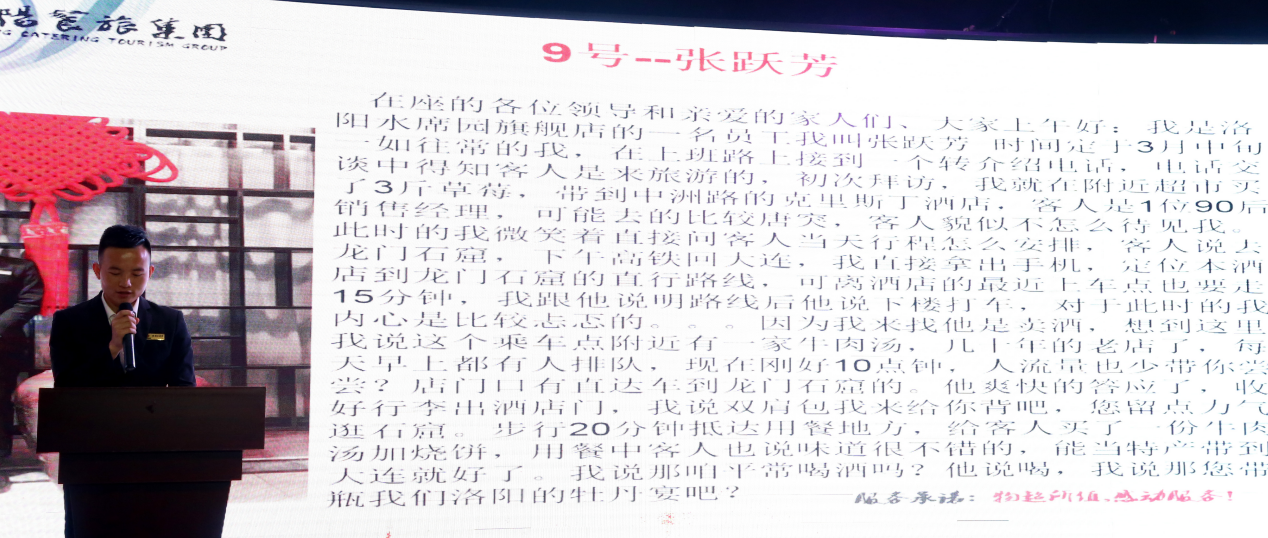 餐旅集团
G CATERING TOURISM GROUP
9号--张跃芳
在座的各位领导和亲爱的家人们、大家上午好：我是洛
阳水席园旗舰店的一名员工我叫张跃芳 时间定于3月中旬
一如往常的我，在上班路上接到一个转介绍电话，电话交
谈中得知客人是来旅游的，初次拜访，我就在附近超市买
了3斤草莓，带到中洲路的克里斯丁酒店，客人是1位90后
销售经理，可能去的比较唐突，客人貌似不怎么待见我。
此时的我微笑着直接问客人当天行程怎么安排，客人说去
龙门石窟，下午高铁回大连，我直接拿出手机，定位本酒
店到龙门石窟的直行路线，可离酒店的最近上车点也要走
15分钟，我跟他说明路线后他说下楼打车，对于此时的我
内心是比较忐忑的。。。因为我来找他是卖酒，想到这里
我说这个乘车点附近有一家牛肉汤，几十年的老店了，每
天早上都有人排队，现在刚好10点钟，人流量也少带你尝
尝？店门口有直达车到龙门石窟的。他爽快的答应了，收
好行李出酒店门，我说双肩包我来给你背吧，您留点力气
逛石窟。步行20分钟抵达用餐地方，给客人买了一份牛肉
汤加烧饼，用餐中客人也说味道很不错的，能当特产带到
大连就好了。我说那咱平常喝酒吗？他说喝，我说那您带
瓶我们洛阳的牡丹宴吧？
服务承诺：物超所值、感动服务！